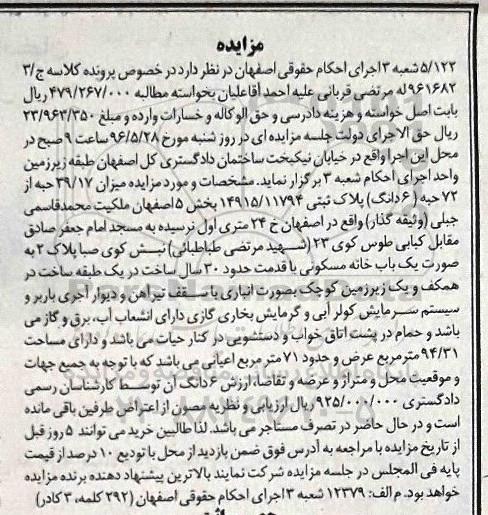 مزایده
۵/۱۲۲ شعبه ۳ اجرای احکام حقوقی اصفهان در نظر دارد در خصوص پرونده کلاسه ج/۳
۹۶۱۶۸۲ له مرتضی قربانی علیه احمد آقاعلیان بخواسته مطالبه ۴۷۹/۲۶۷/۰۰۰ ریال
بابت اصل خواسته و هزینه دادرسی و حق الوکاله و خسارات وارده و مبلغ ۲۳/۹۶۳/۳۵۰
ریال حق الاجرای دولت جلسه مزایده ای در روز شنبه مورخ ۹۶/۵/۲۸ ساعت ۹ صبح در
محل این اجرا واقع در خیابان نیکبخت ساختمان دادگستری کل اصفهان طبقه زیرزمین
واحد اجرای احکام شعبه ۳ برگزار نماید. مشخصات و مورد مزایده میزان ۳۹/۱۷ حبه از
۷۲ حبه (۶ دانگ) پلاک ثبتی ۱۴۹۱۵/۱۱۷۹۴ بخش ۵ اصفهان ملکیت محمدقاسمی
جبلی (وثیقه گذار) واقع در اصفهان خ ۲۴ متری اول نرسیده به مسجد امام جعفر صادق
مقابل کبابی طوس کوی ۲۳ (شهید مرتضی طباطبائی) نبش کوی صبا پلاک ۲ به
صورت یک باب خانه مسکونی با قدمت حدود ۳۰ سال ساخت در یک طبقه ساخت در
همکف و یک زیرزمین کوچک بصورت انباری با سقف تیرآهن و دیوار آجری باربر و
سیستم سرمایش کولر آبی و گرمایش بخاری گازی دارای انشعاب آب، برق و گاز می
باشد و حمام در پشت اتاق خواب و دستشویی در کنار حیات می باشد و دارای مساحت
۹۴/۳۱ مترمربع عرض و حدود ۷۱ متر مربع اعیانی می باشد که با توجه به جمیع جهات
و موقعیت محل و متراژ و عرضه و تقاضا، ارزش ۶ دانگ آن توسط کارشناسان رسمی
دادگستری ۹۲۵/۰۰۰/۰۰۰ ریال ارزیابی و نظریه مصون از اعتراض طرفین باقی مانده
است و در حال حاضر در تصرف مستاجر می باشد. لذا طالبین خرید می توانند ۵ روز قبل
از تاریخ مزایده با مراجعه به آدرس فوق ضمن بازدید از محل با تودیع ۱۰ درصد از قیمت
پایه فی المجلس در جلسه مزایده شرکت نمایند بالاترین پیشنهاد دهنده برنده مزایده
خواهد بود. م الف: ۱۲۳۷۹ شعبه ۳ اجرای احکام حقوقی اصفهان (۲۹۲ کلمه، ۳ کادر)